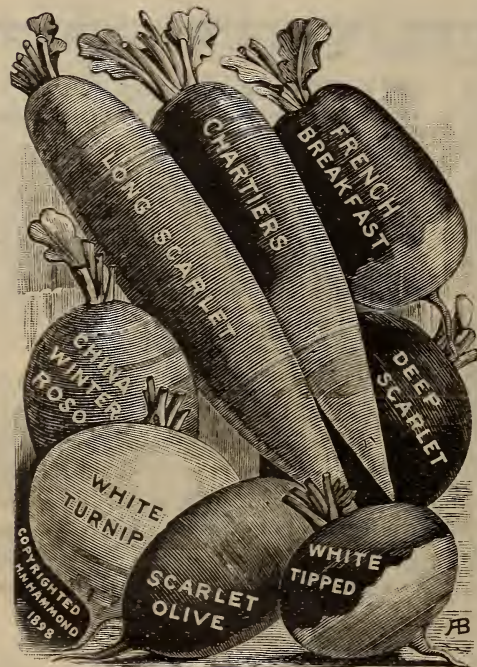 LONG SCARLET
CHARTIERS
FRENCH
BREAKFAST
CHINA
WINTER
ROSO
DEEP
SCARLET
WHITE
TURNIP
SCARLET
OLIVE
WHITE
TIPPED
COPYRIGHTED
H.N.HAMMOND
1898
AB